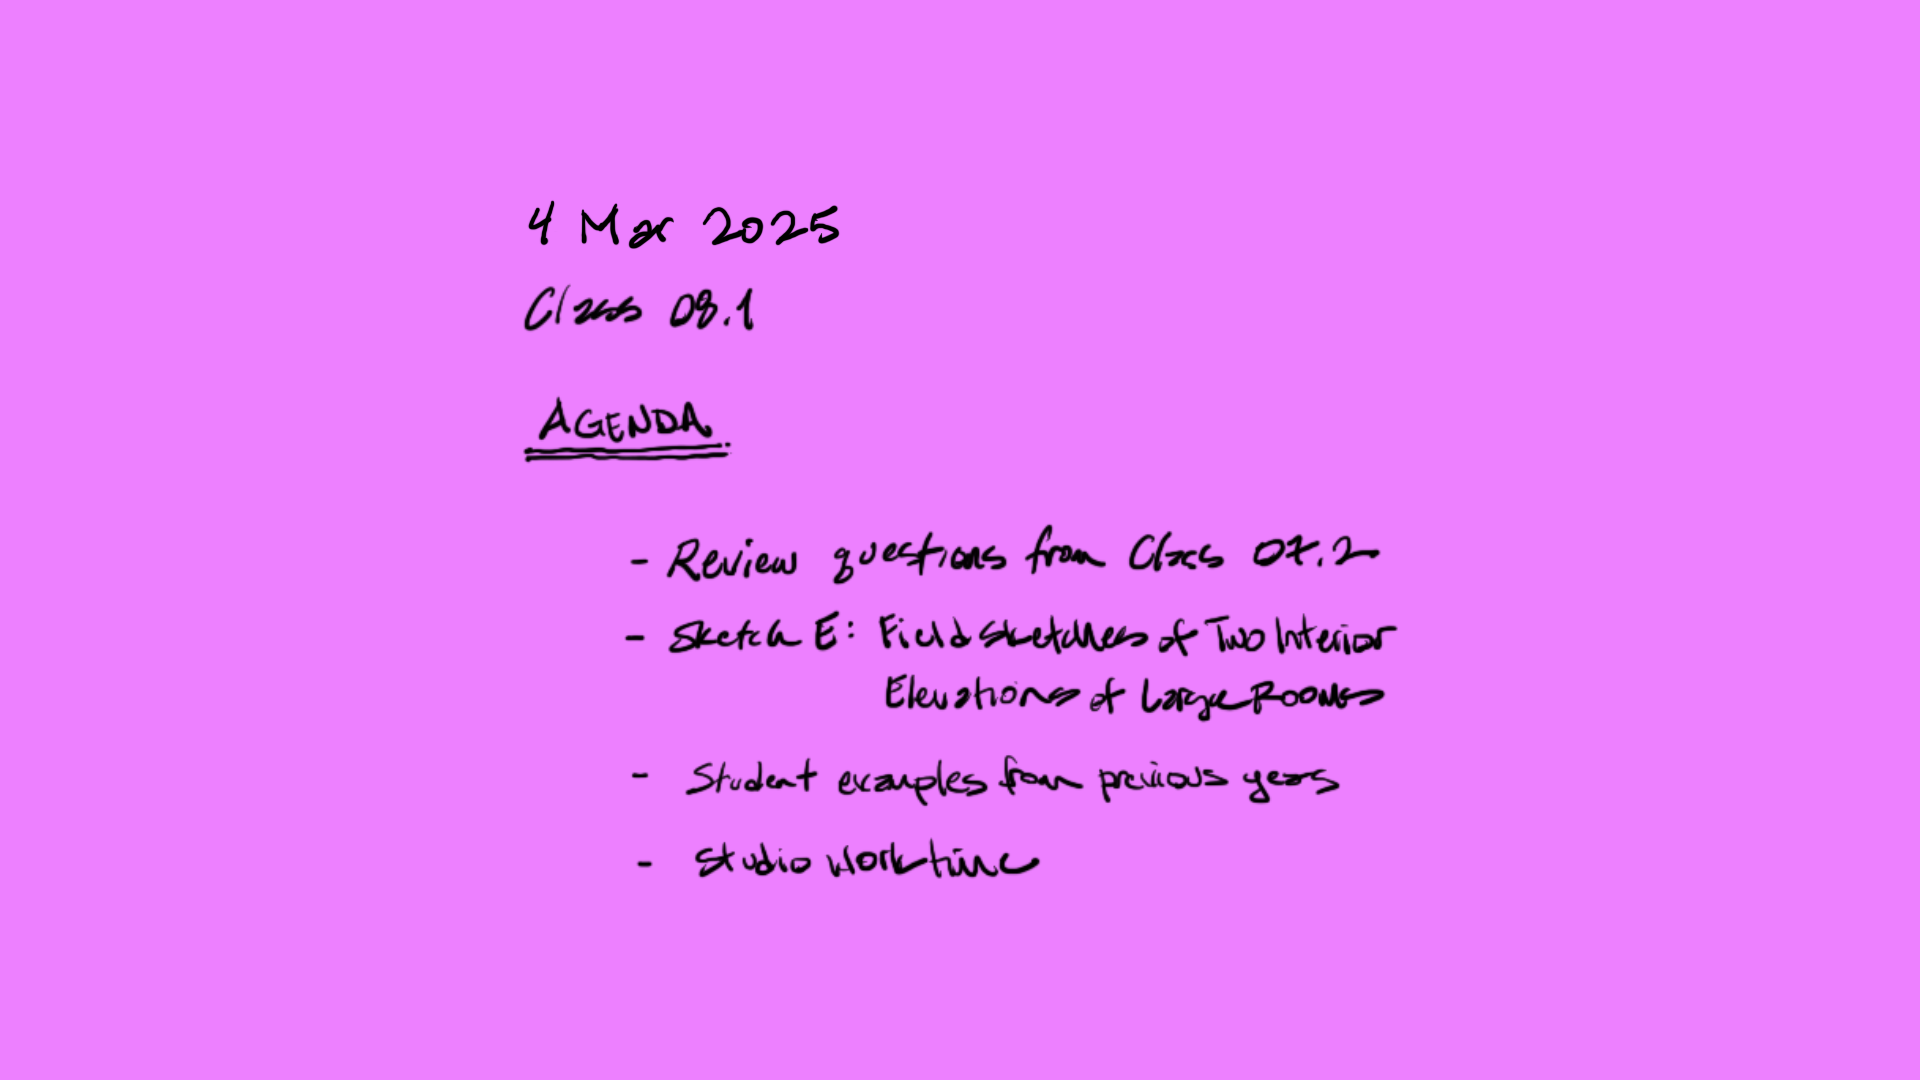 4 Mar 2025
Class 08.1
AGENDA
- Review questions from Class 07.2
- Sketch E: Field Sketches of Two Interior
Elevations of Large Rooms
- Student examples from previous years
- Studio work time